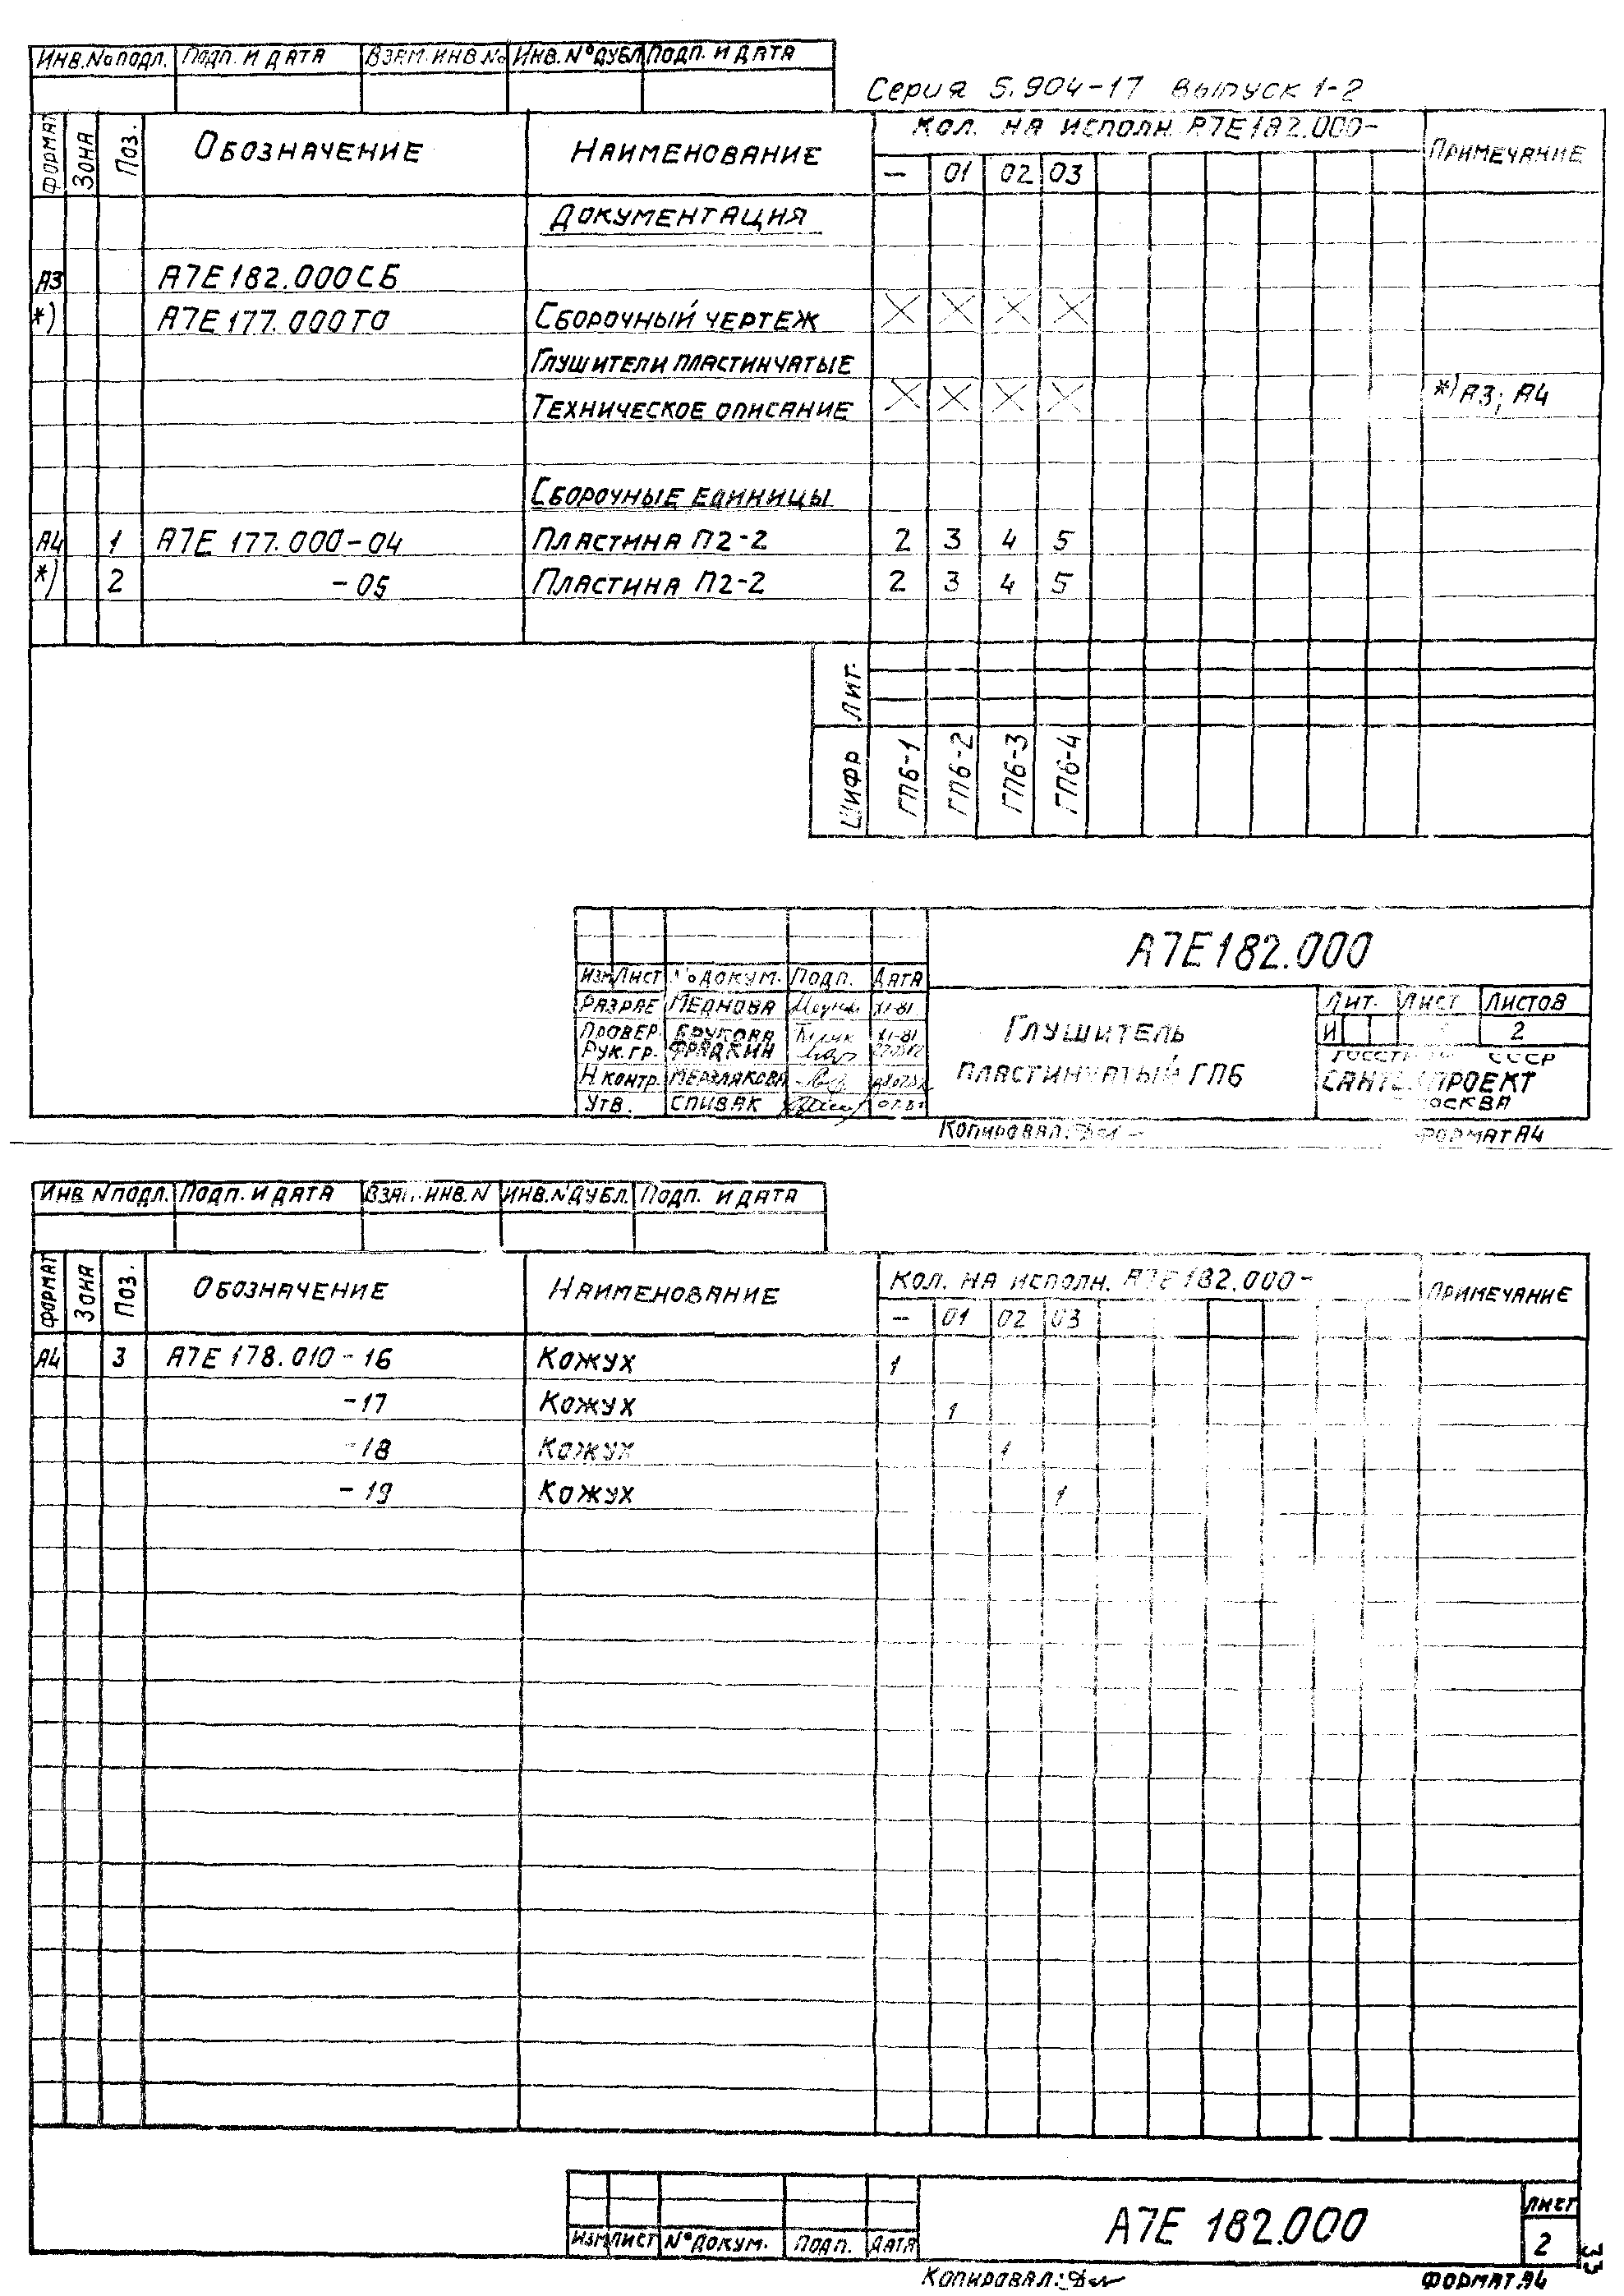 Инв.№ подл. Подп. и дата Взам. инв № Инв. №дубл Подп. и дата
Серия 5.904-17 выпуск 1-2
Формат Зона Поз. Обозначение Наименование Кол. на исполн. А7Е182.000- Примечание
— 01 02 03
Документация
А3 А7Е182.000СБ
*) А7Е177.000ТО Сборочный чертеж
Глушители пластинчатые
Техническое описание *) А3; А4
Сборочные единицы
А4 1 А7Е 177.000-04 Пластина П2-2 2 3 4 5
*) 2 -05 Пластина П2-2 2 3 4 5
Лит.
Шифр ГП6-1 ГП6-2 ГП6-3 ГП6-4
А7Е182.000
Изм Лист № докум. Подп. Дата
Разраб Меднова XI-81
Провер. Брукова XI-81
Рук.гр. Фрадкин
Н.контр. Мерзлякова
Утв. Спивак
Глушитель
пластинчатый ГП6
Лит. Лист Листов
И 2
СССР
ПРОЕКТ
Москва
Копировал: Формат А4
Инв №подл. Подп. и дата Взам. инв. № Инв. №дубл. Подп. и дата
Формат Зона Поз. Обозначение Наименование Кол. на исполн. А7Е182.000- Примечание
— 01 02 03
А4 3 А7Е 178.010-16 Кожух 1
-17 Кожух 1
-18 Кожух 1
-19 Кожух 1
Изм Лист №докум. Подп. Дата
А7Е 182.000
Лист
2
33
Копировал: Формат А4